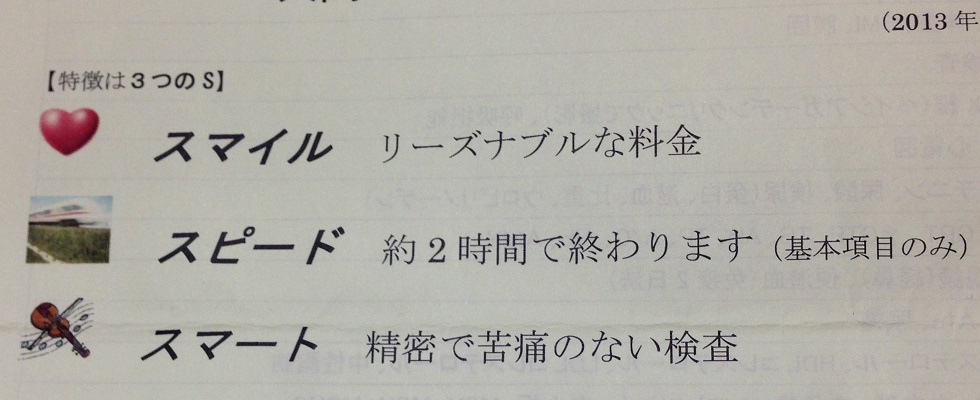 (2013 年
【特徴は3つのS】
スマイル リーズナブルな料金
スピード 約2時間で終わります (基本項目のみ)
スマート 精密で苦痛のない検査